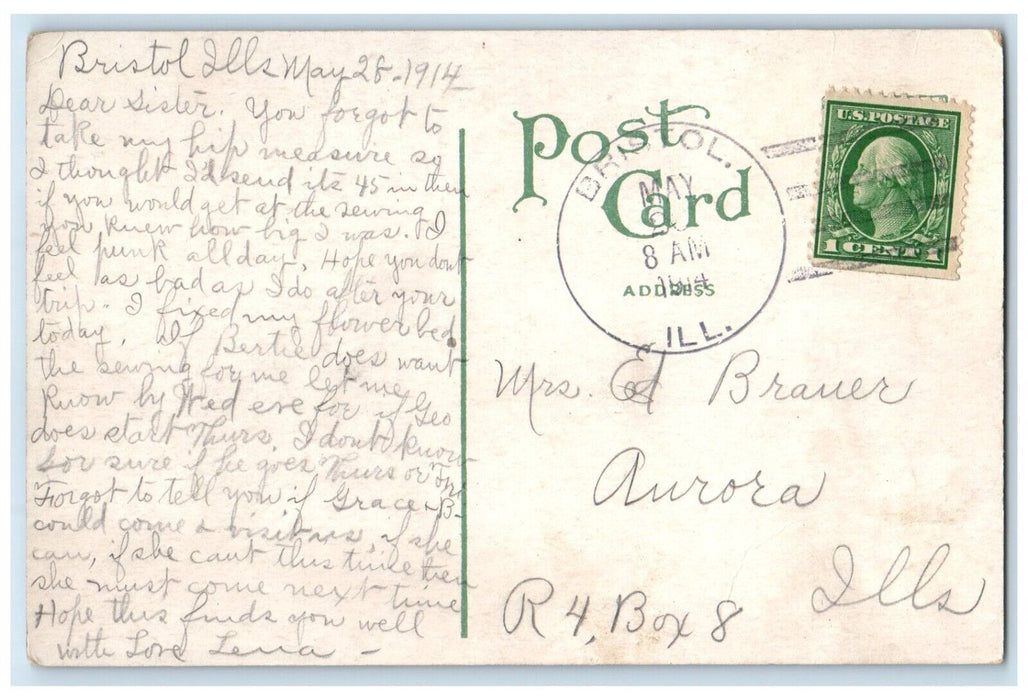 Bristol Ills May 28-1914
Dear Sister. You forgot to
take my hip measure so
I thought I'd send it 45 in then
if you would get at the sewing
you knew how big I was. I
feel punk all day, Hope you dont
feel as bad as I do after your
trip. I fixed my flower bed
today, If Bertie does want
the sewing for me let me
know by Wed eve for if Geo
does start Thurs, I dont know
for sure if he goes Thurs or Fri
Forgot to tell you if Grace-B-
could come & visit us, if she
can, if she cant this time then
she must come next time
Hope this finds you well
with Love Lena -
Post
Card
ADDRESS
BRISTOL.
MAY
8 AM
1914
ILL.
U.S. POSTAGE
1 CENT 1
Mrs. Brauer
Aurora
Ills
R 4, Box 8